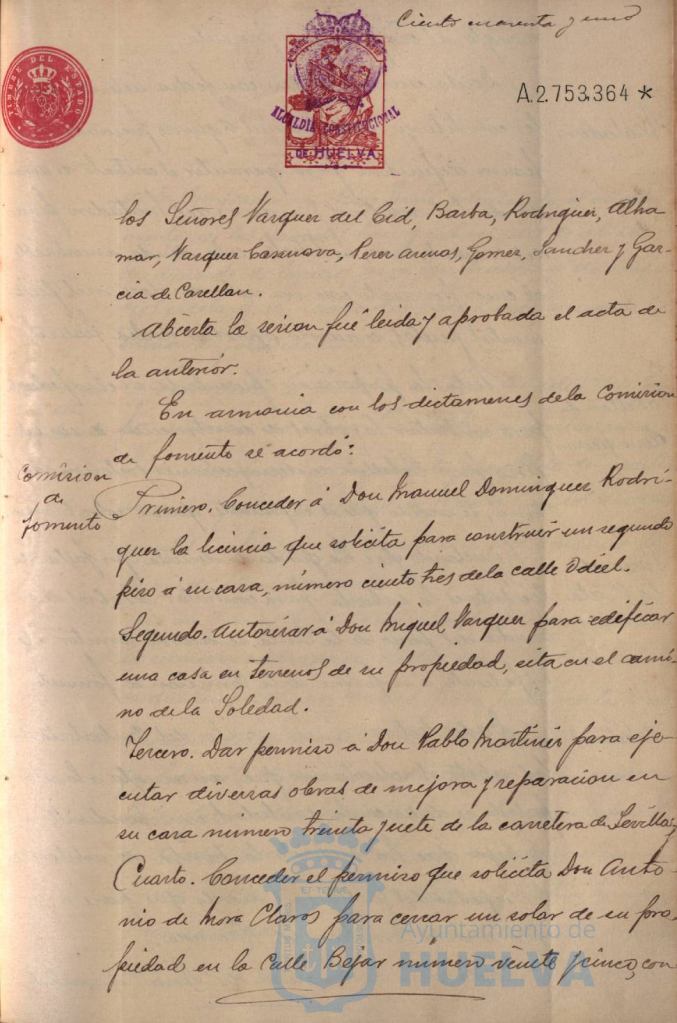 Ciento cuarenta y uno
TIMBRE DEL ESTADO
A.2.753.364 *
ALCALDIA CONSTITUCIONAL
DE HUELVA
los Señores Vazquez del Cid, Barba, Rodriguez, Alha-
mar, Vazquez Casanova, Perez Arenas, Gomez, Sanchez y Gar-
cia de Casellan.
Abierta la sesion fué leida y aprobada el acta de
la anterior.
En armonia con los dictamenes de la Comision
de fomento se acordó:
Comision
de
fomento
Primero. Conceder á Don Manuel Dominguez Rodri-
guez la licencia que solicita para construir un segundo
piso á su casa, número ciento tres de la calle Odiel.
Segundo. Autorizar á Don Miguel Vazquez para edificar
una casa en terrenos de su propiedad, sita en el cami-
no de la Soledad.
Tercero. Dar permiso á Don Pablo Martinez para eje-
cutar diversas obras de mejora y reparacion en
su casa número treinta y siete de la carretera de Sevilla y
Cuarto. Conceder el permiso que solicita Don Anto-
nio de Mora Claros para cercar un solar de su pro-
piedad en la Calle Bejar número veinte y cinco, con
Ayuntamiento de
HUELVA